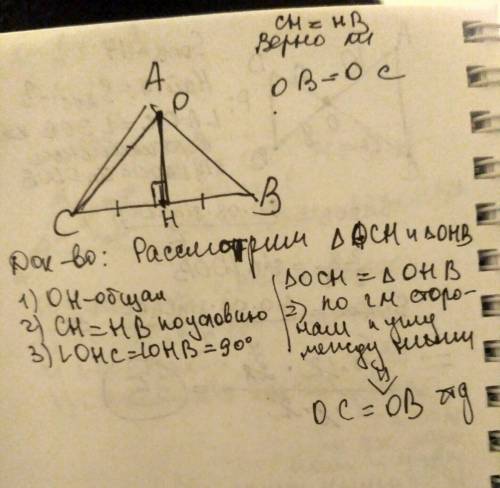 CH = HB
Верно ли
OB = OC
A
O
C
H
B
Док-во: Рассмотрим ΔOCH и ΔOHB
1) OH-общая
2) CH = HB по условию
3) ∠OHC = ∠OHB = 90°
ΔOCH = ΔOHB
по 2м сторо-
нам и углу
между ними
⇓
OC = OB чтд